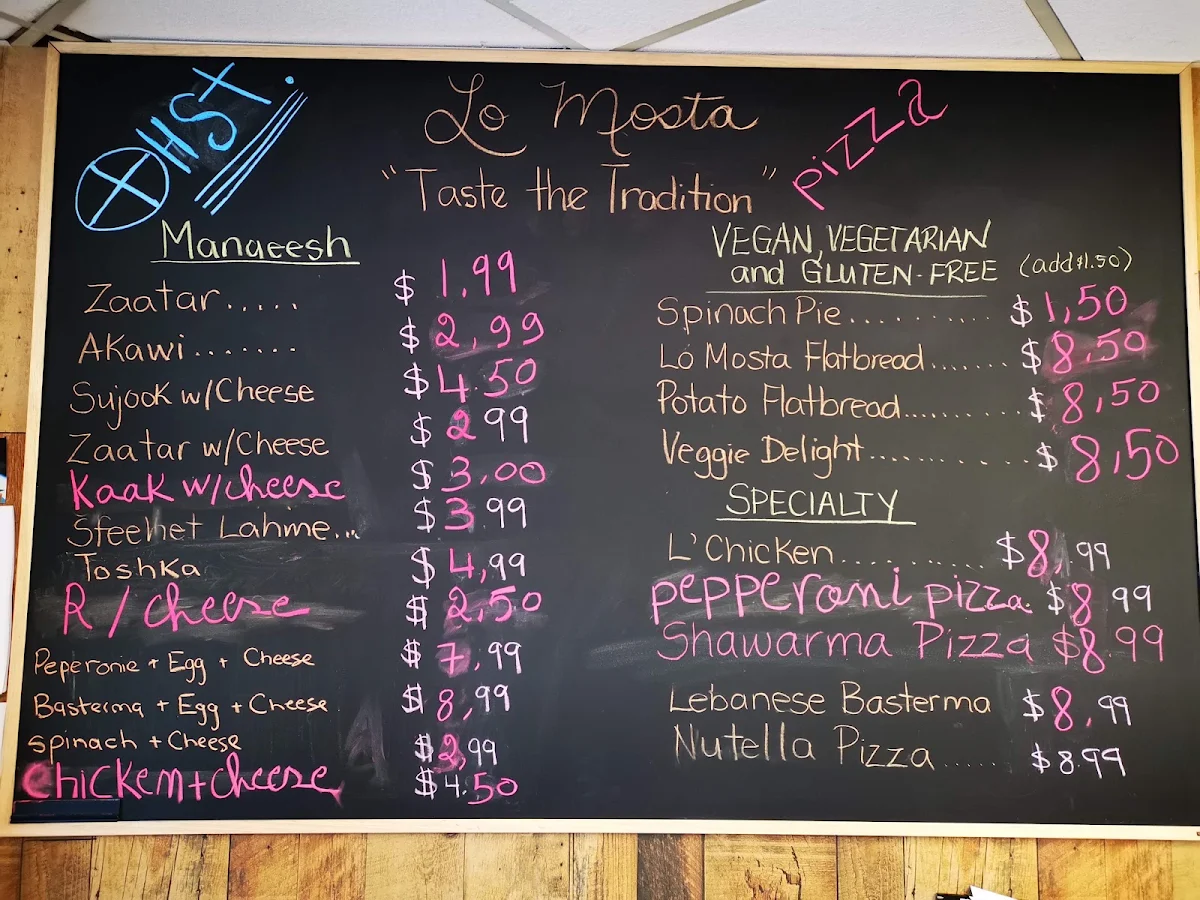 ⊕ HST.
Lo Mosta
pizza
"Taste the Tradition"
Manaeesh
Zaatar..... $ 1.99
AKawi....... $ 2,99
Sujook w/Cheese $ 4.50
Zaatar w/Cheese $ 2 99
Kaak w/cheese $ 3.00
Sfeehet Lahme... $ 3.99
Toshka $ 4,99
R / cheese $ 2,50
Peperonie + Egg + Cheese $ 7,99
Basterma + Egg + Cheese $ 8,99
Spinach + Cheese $ 2,99
Chicken + cheese $ 4.50
VEGAN, VEGETARIAN
and GLUTEN-FREE (add $1.50)
Spinach Pie.......... $ 1,50
Lo Mosta Flatbread....... $ 8.50
Potato Flatbread.......... $ 8,50
Veggie Delight.......... $ 8,50
SPECIALTY
L'Chicken............ $ 8,99
pepperoni pizza. $ 8 99
Shawarma Pizza $8.99
Lebanese Basterma $ 8.99
Nutella Pizza..... $ 8.99